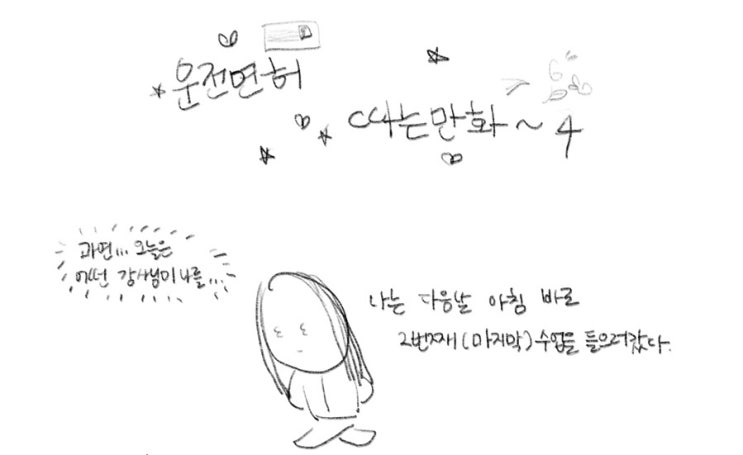 운전면허
따는만화~4
과연... 오늘은
어떤 강사님이 나를...
나는 다음날 아침 바로
2번째(마지막) 수업을 들으러갔다.